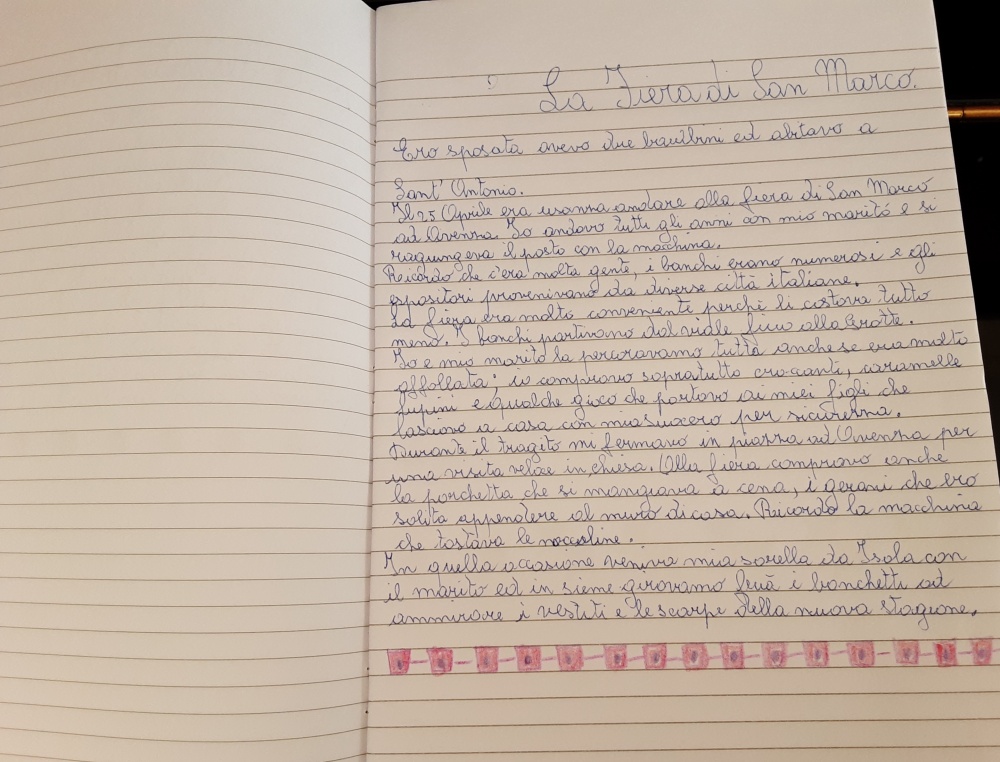 La Fiera di San Marco.
Ero sposata avevo due bambini ed abitavo a
Sant' Antonio.
Il 25 Aprile era usanza andare alla fiera di San Marco
ad Avenza. Io andavo tutti gli anni con mio marito e si
raguingeva il posto con la macchina.
Ricordo che c'era molta gente, i banchi erano numerosi e gli
espositori provenivano da diverse città italiane.
La fiera era molto conveniente perchè li costava tutto
meno. I banchi partivano dal viale fino alla Grotte.
Io e mio marito la percoravamo tutta anche se era molto
affollata; io compravo sopratutto croccanti, caramelle
lupini e qualche gioco che portavo ai miei figli che
lasciavo a casa con mia suocera per sicurezza.
Durante il tragito mi fermavo in piazza ad Avenza per
una visita veloce in chiesa. Alla fiera compravo anche
la porchetta che si mangiava a cena, i gerani che ero
solita appendere al muro di casa. Ricordo la macchina
che tostava le noccoline.
In quella occasione veniva mia sorella da Isola con
il marito ed in sieme giravamo i banchetti ad
ammirare i vestiti e le scarpe della nuova stagione.